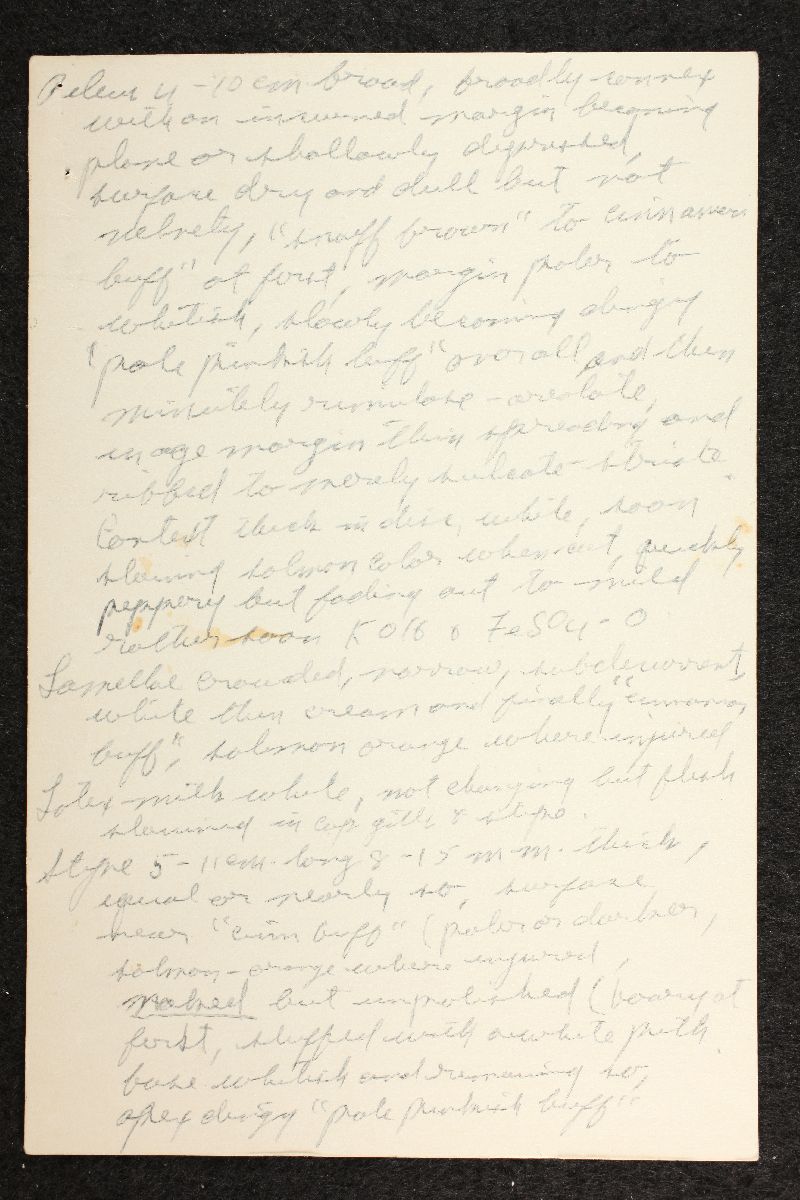 Pileus 4-10 cm broad, broadly convex
with an incurved margin becoming
plane or shallowly depressed,
surface dry and dull but not
velvety, "snuff brown" to cinnamon
buff" at first, margin paler to
whitish, slowly becoming dingy
"pale pinkish buff" overall and then
minutely rimulose-areolate,
in age margin thin spreading and
ribbed to merely sulcate-striate.
Context thick in disc, white, soon
staining salmon color when cut, quickly
peppery but fading out to mild
rather soon KOH o FeSO4-O
Lamellae crowded, narrow, subdecurrent,
white then cream and finally "cinnamon
buff", salmon orange where injured
Latex milk white, not changing but flesh
stained in cap gills & stipe.
Stipe 5-11 cm long 8-15 mm thick,
equal or nearly so, surface
near "cinn buff" (paler or darker,
salmon-orange where injured,
naked but unpolished (hoary at
first, stuffed with a white pith
base whitish and remaining so,
apex dingy "pale pinkish buff"